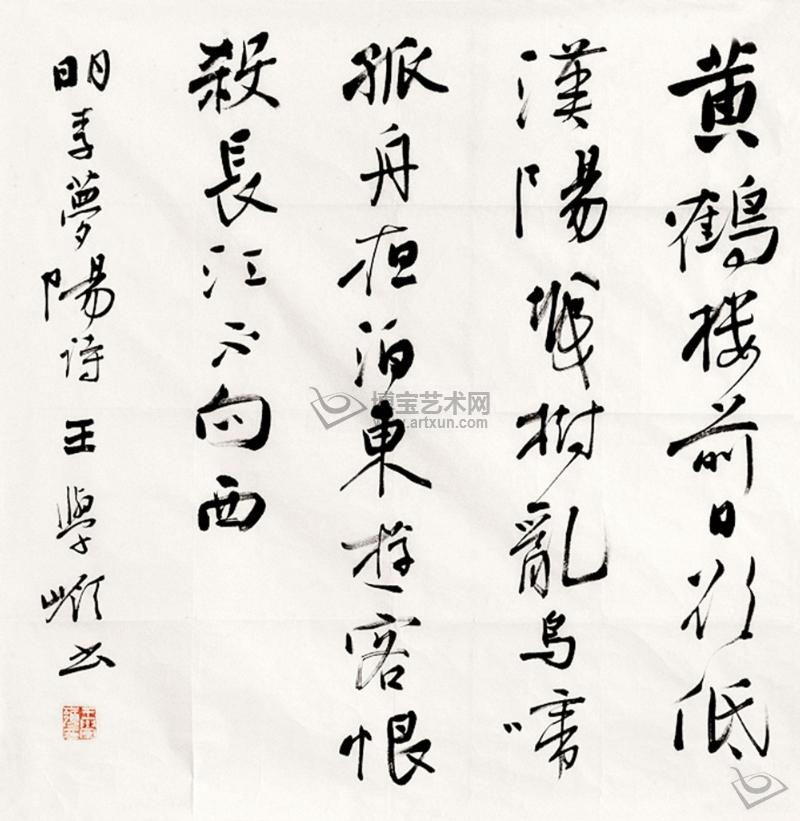 黄鶴楼前日欲低
漢陽城樹亂烏啼
孤舟夜泊東遊客恨
殺長江不向西
明李夢陽詩 王學嶺书
博宝艺术网
www.artxun.com